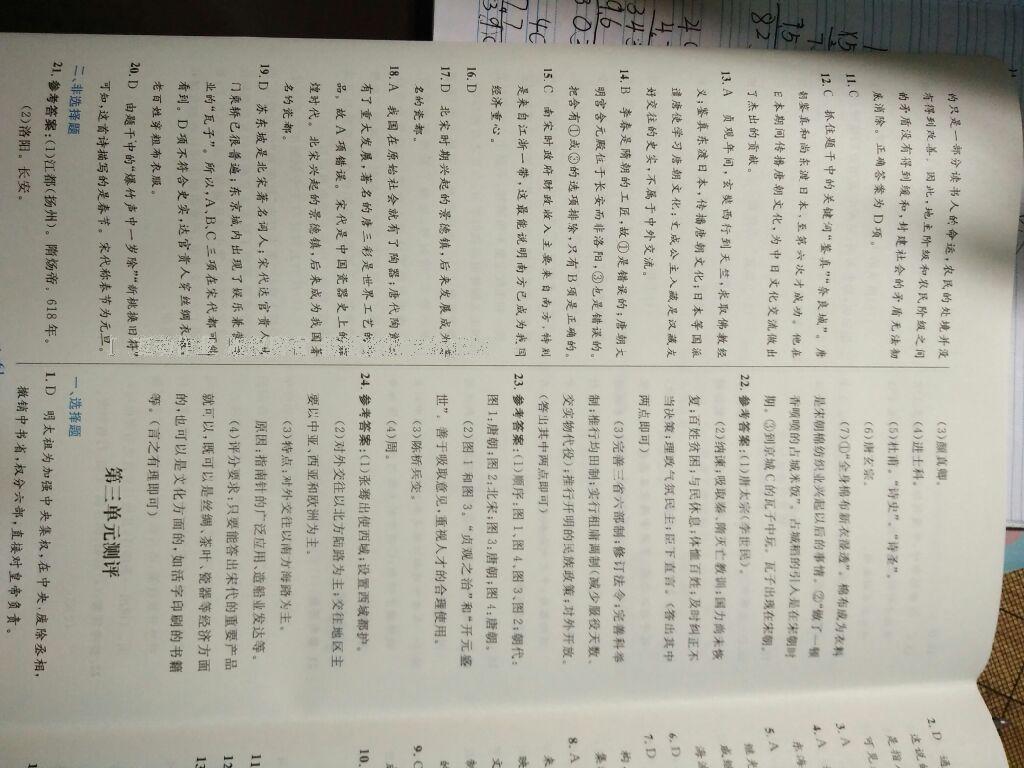 的只是一部分读书人的命运,农民的处境并没
有得到改善。因此,地主阶级和农民阶级之间
的矛盾没有得到缓和,封建社会的矛盾无法彻
底消除。正确答案为D项。
11. C
12. C 抓住题干中的关键词“鉴真”“奈良城”。唐
朝鉴真和尚东渡日本,至第六次才成功。他在
日本期间传播唐朝文化,为中日文化交流做出
了杰出的贡献。
13. A 贞观年间,玄奘西行到天竺,求取佛教经
义;鉴真东渡日本,传播唐朝文化;日本等国派
遣唐使学习唐朝文化;文成公主入藏是汉藏友
好交往的史实,不属于中外交流。
14. B 李春是隋朝的工匠,故①是错误的;唐朝大
明宫含元殿位于长安而非洛阳,③也是错误的。
把含有①或③的选项排除,只有B项是正确的。
15. C 南宋时政府财政收入主要来自南方,特别
是来自江浙一带,这最能说明南方已成为我国
经济重心。
16. D
17. D 北宋时期兴起的景德镇,后来发展成为
名的瓷都。
18. A 我国在原始社会就有了陶器;唐代陶
有了重大发展,著名的唐三彩是世界工艺的
品。故A项错误。宋代是中国瓷器史上的
煌时代。北宋兴起的景德镇,后来成为我国著
名的瓷都。
19. D 苏东坡是北宋著名词人;宋代达官贵人
门乘轿已很普遍;东京城内出现了娱乐兼
业的“瓦子”。所以,A、B、C三项在宋代都可
看到。D项不符合史实,达官贵人穿丝绸衣
老百姓穿粗布衣服。
20. D 由题干中的“爆竹声中一岁除”“新桃换旧符”
可知,这首诗描写的是春节。宋代称春节为元旦。
二、非选择题
21. 参考答案:(1)江都(扬州)。隋炀帝。618年。
(2)洛阳。长安。
(3)颜真卿。
(4)进士科。
(5)杜甫。“诗史”。“诗圣”。
(6)唐玄宗。
(7)①“全身棉布新衣湿透”。棉布成为衣料
是宋朝棉纺织业兴起以后的事情。②“做了一顿
香喷喷的占城米饭”。占城稻的引入是在宋朝时
期。③到京城C的瓦子中玩。瓦子出现在宋朝。
22. 参考答案:(1)唐太宗(李世民)。
(2)纳谏;吸取秦、隋灭亡教训;国力尚未恢
复;百姓贫困;与民休息;体恤百姓;及时纠正不
当决策;理政气氛民主;臣下直言。(答出其中
两点即可)
(3)完善三省六部制;修订法令;完善科举
制;推行均田制;实行租庸调制(减少服役天数、
交实物代役);推行开明的民族政策;对外开放。
(答出其中两点即可)
23. 参考答案:(1)顺序:图1、图4、图3、图2;朝代:
图1:唐朝;图2:北宋;图3:唐朝;图4:唐朝。
(2)图1和图3。“贞观之治”和“开元盛
世”。善于吸取意见,重视人才的合理使用。
(3)陈桥兵变。
(4)周。
24. 参考答案:(1)张骞出使西域;设置西域都护。
(2)对外交往以北方陆路为主;交往地区主
要以中亚、西亚和欧洲为主。
(3)特点:对外交往以南方海路为主。
原因:指南针的广泛应用、造船业发达等。
(4)评分要求:只要能答出宋代的重要产品
就可以,既可以是丝绸、茶叶、瓷器等经济方面
的,也可以是文化方面的,如活字印刷的书籍
等。(言之有理即可)
第三单元测评
一、选择题
1. D 明太祖为加强中央集权,在中央,废除丞相,
撤销中书省,权分六部,直接对皇帝负责。
2. D
3. A
4. A
5. A
6. D
7. D
8. A
9. C
10.
11
12
13